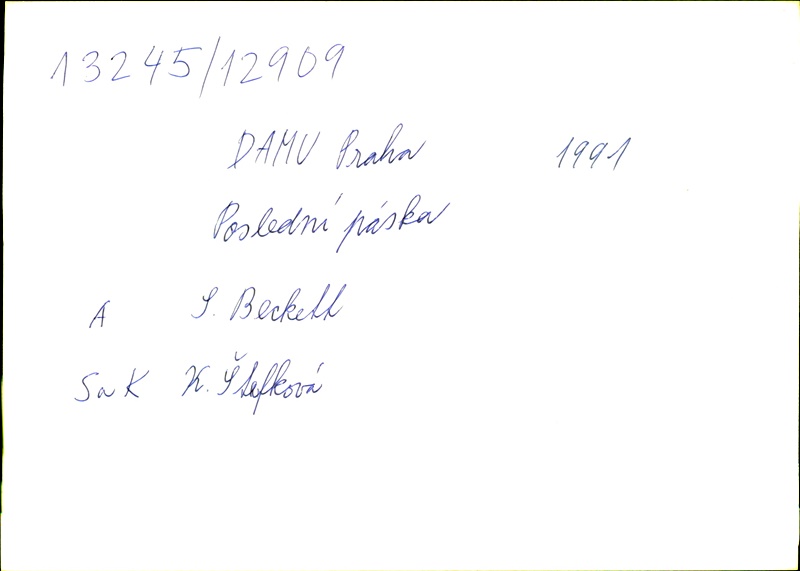 13245/12909
DAMU Praha 1991
Poslední páska
A S. Beckett
SaK K. Štefková